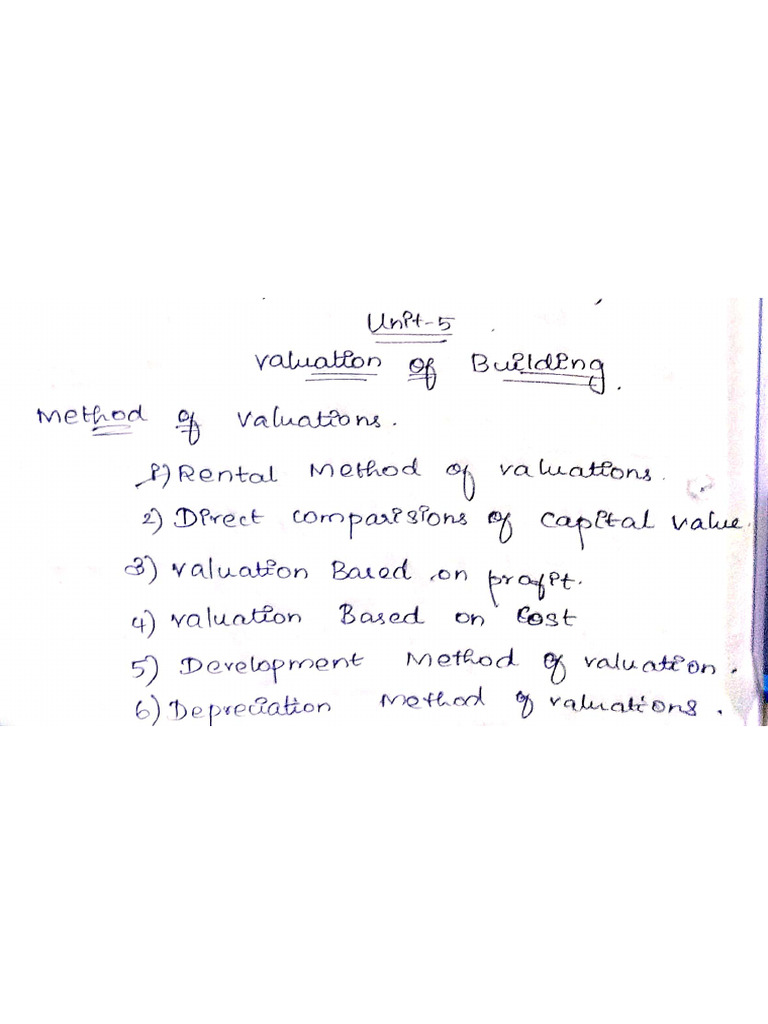 Unit-5
valuation of Building.
Method of valuations.
1) Rental Method of valuations.
2) Direct comparisions of capital value.
3) valuation Based on profit.
4) valuation Based on Cost
5) Development Method of valuation.
6) Depreciation Method of valuations.